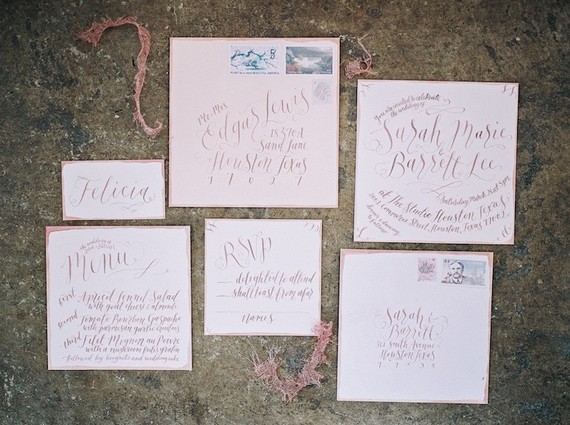 Mr. Mrs.
Edgar Lewis
Sand Jane
Houston Texas
77027
You are invited to celebrate
the wedding of
Sarah Marie
&
Barrett Lee
Saturday March
at The Studio Houston Texas
Commerce Street, Houston, Texas 77002
dinner & dancing
to follow
Felicia
the wedding of
Menu
first
Apricot Fennel Salad
with goat cheese & almonds
second
Tomato Bourbon Gazpacho
with parmesan garlic
third
Filet Mignon au Poivre
with a mushroom
followed by and wedding cake
RSVP
delighted to attend
shall toast from afar
names
Sarah &
Barrett
South
Houston Texas